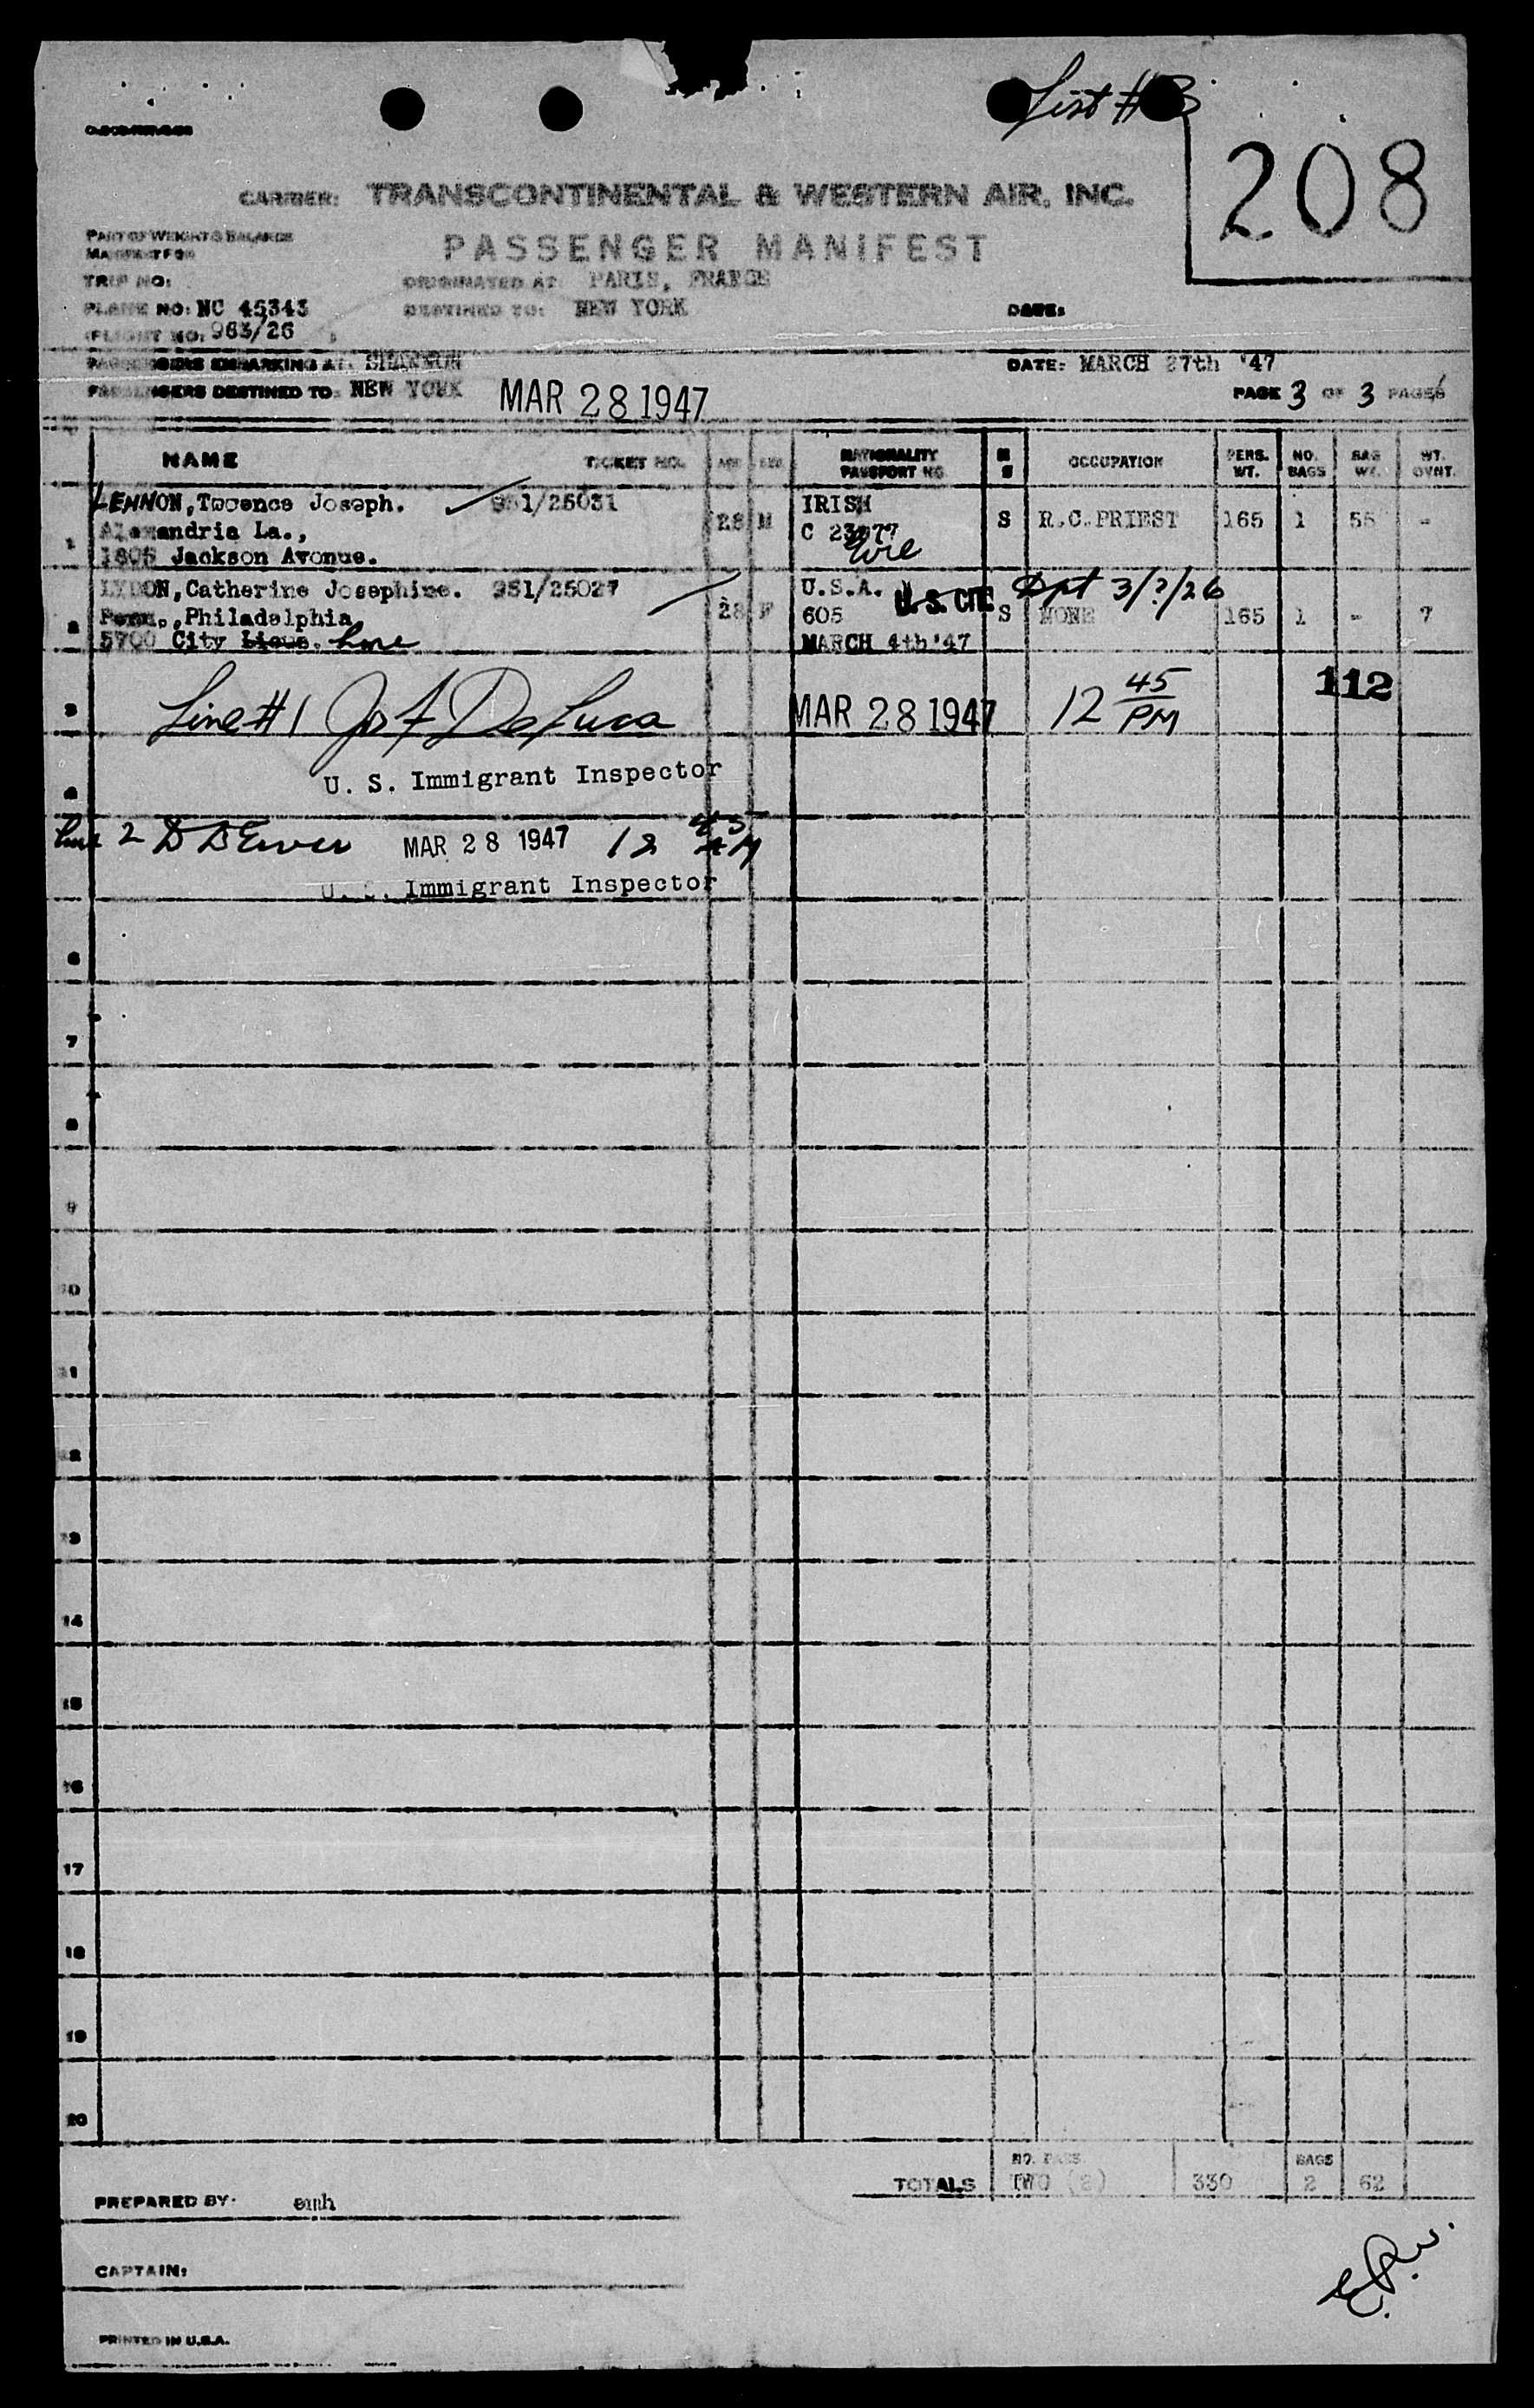 List #3
208
CARRIER: TRANSCONTINENTAL & WESTERN AIR, INC.
PART OF WEIGHT & BALANCE
MANIFEST FOR
PASSENGER MANIFEST
TRIP NO:
ORIGINATED AT: PARIS, FRANCE
PLANE NO: NC 45343
DESTINED TO: NEW YORK
DATE:
FLIGHT NO: 963/26
PASSENGERS EMBARKING AT: SHANNON
DATE: MARCH 27th '47
PASSENGERS DESTINED TO: NEW YORK
MAR 28 1947
PAGE 3 OF 3 PAGES
NAME TICKET NO. AGE SEX NATIONALITY PASSPORT NO M S OCCUPATION PERS. WT. NO. BAGS BAG WT. WT. OVNT.
1 LENNON, Terence Joseph. 951/25031 28 M IRISH S R.C.PRIEST 165 1 55 -
Alexandria La., C 23077
Eire
1805 Jackson Avenue.
2 LYDON, Catherine Josephine. 951/25027 28 F U.S.A. U.S. CIT. S Dpt 3/?/26 NONE 165 1 - 7
Penn., Philadelphia 605
5700 City Line MARCH 4th '47
3 Line #1 Jos F DeLuca MAR 28 1947 12 45 PM 112
4 U. S. Immigrant Inspector
Line 2 MAR 28 1947 12 45 PM
U. S. Immigrant Inspector
6
7
8
9
10
11
12
13
14
15
16
17
18
19
20
TOTALS NO. PASS. TWO (2) 330 BAGS 2 62
PREPARED BY: emh
CAPTAIN:
PRINTED IN U.S.A.